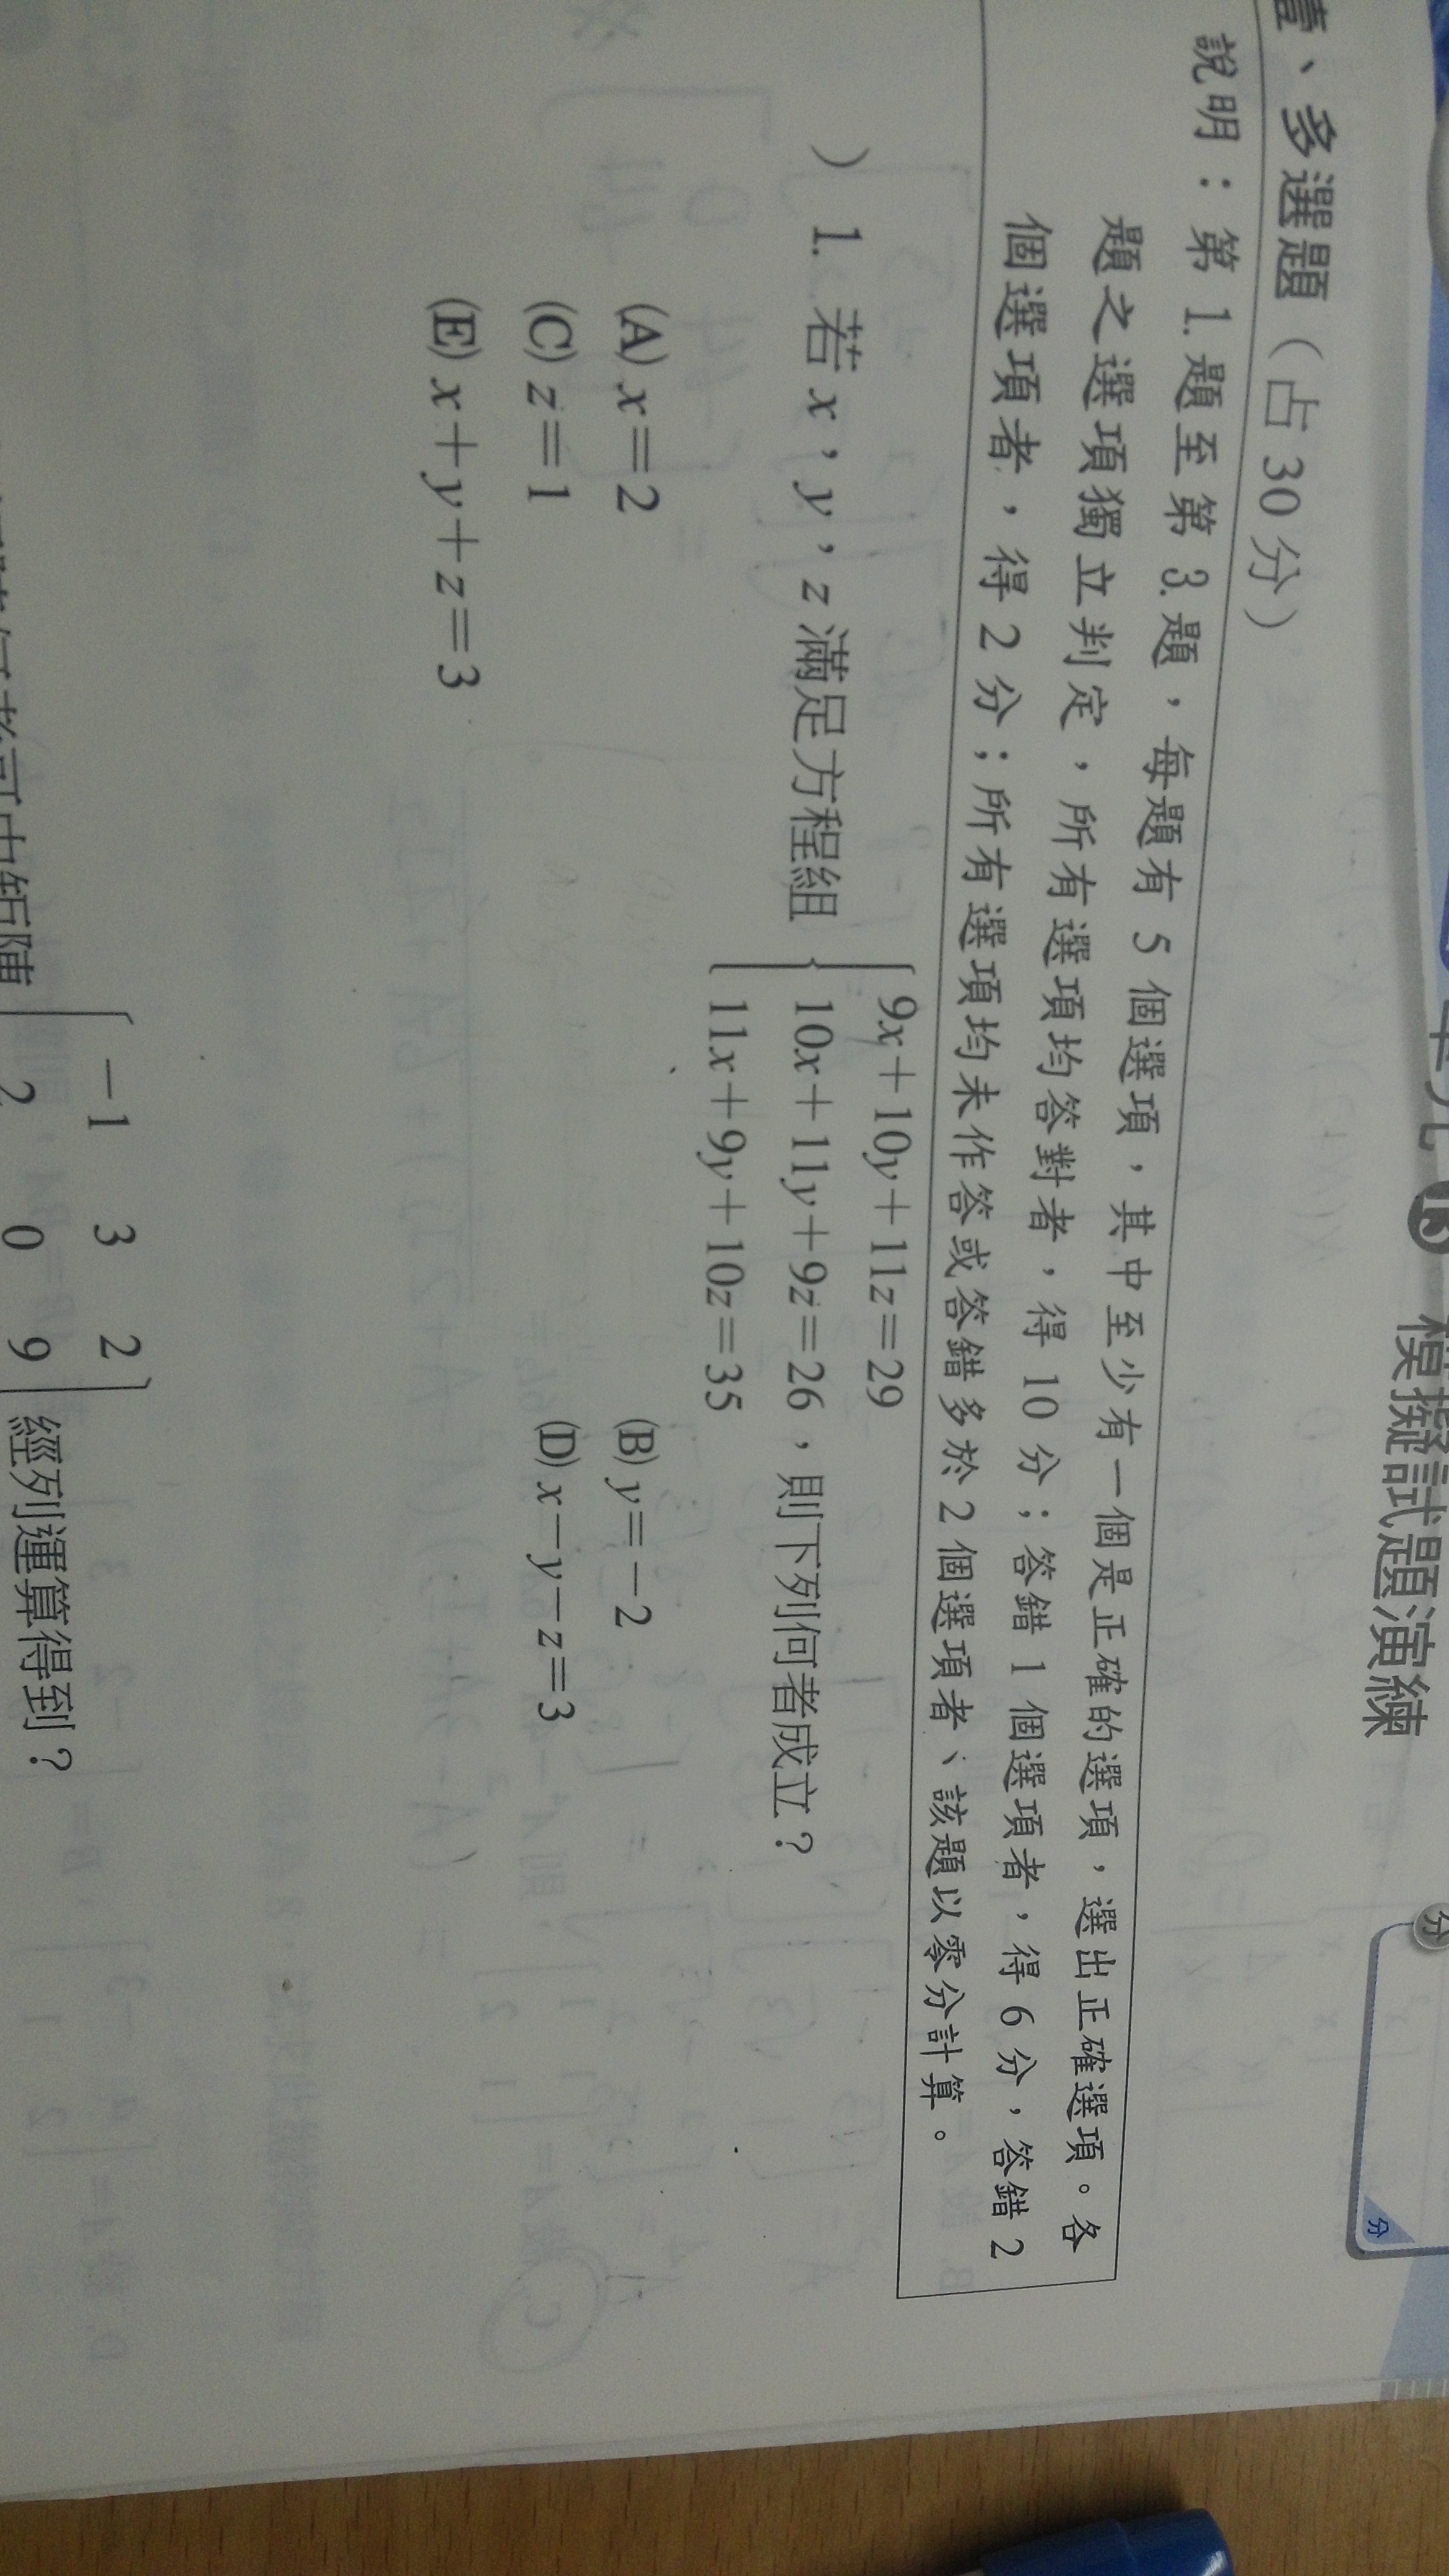 模擬試題演練
分
分
壹、多選題（占 30 分）
說明：第 1. 題至第 3. 題，每題有 5 個選項，其中至少有一個是正確的選項，選出正確選項。各
題之選項獨立判定，所有選項均答對者，得 10 分；答錯 1 個選項者，得 6 分，答錯 2
個選項者，得 2 分；所有選項均未作答或答錯多於 2 個選項者、該題以零分計算。
）1. 若 x，y，z 滿足方程組 { 9x+10y+11z=29
10x+11y+9z=26，則下列何者成立？
11x+9y+10z=35
(A) x=2 (B) y=-2
(C) z=1 (D) x-y-z=3
(E) x+y+z=3
-1 3 2
矩陣 2 0 9 經列運算得到？